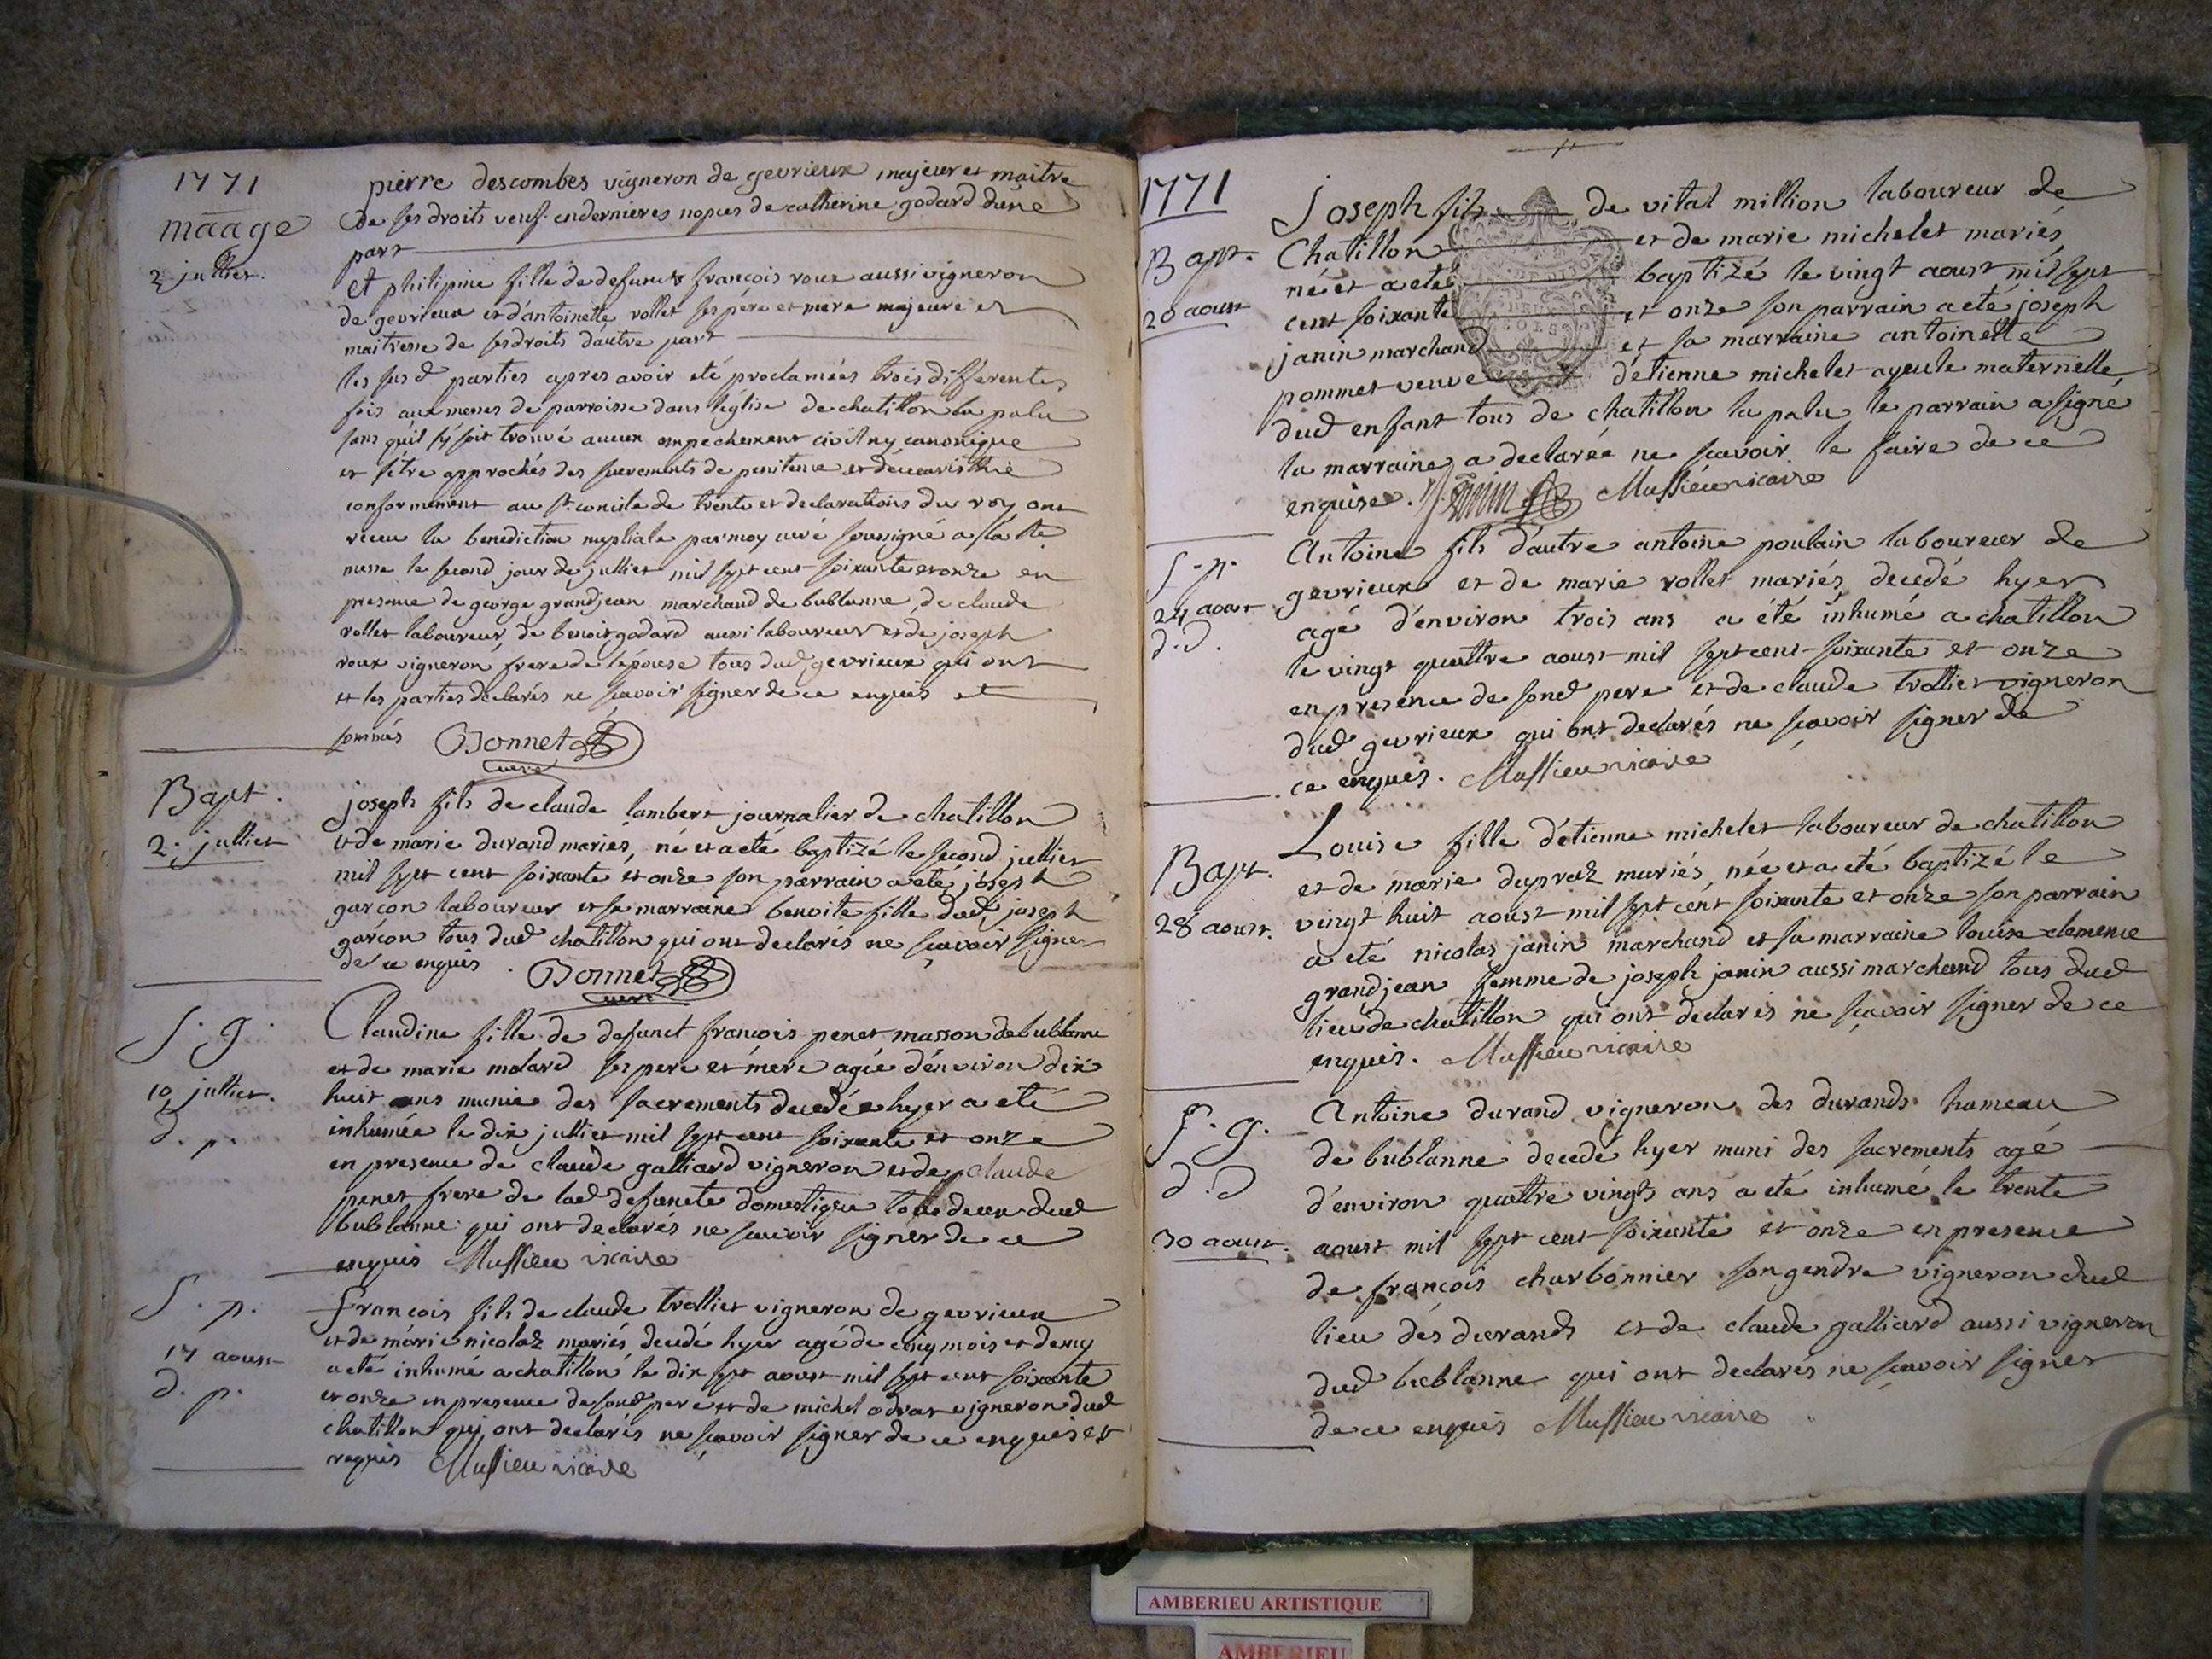 1771
maāage
2 julliet.
pierre descombes vigneron de gevrieux majeur et maitre
de ses droits veuf en dernieres nopces de catherine godard d'une
part
et philipine fille de defunct françois roux aussi vigneron
de gevrieux et d'antoinette rollet ses père et mere majeure et
maitresse de ses droits d'autre part
les susd parties apres avoir eté proclamées trois differentes
fois aux messes de parroisse dans l'église de chatillon la palu
sans qu'il s'y soit trouvé aucun empechement civil ny canonique
et s'être approchés des sacrements de penitence et d'eucaristhie
conformement au st. concile de trente et declarations du roy ont
receu la benediction nuptiale par moy curé soussigné a la ste
messe le second jour de julliet mil sept cent soixante et onze en
presence de george grandjean marchand de bublanne, de claude
rollet laboureur, de benoit godard aussi laboureur et de joseph
roux vigneron, frere de l'épouse tous dud gevrieux qui ont
et les parties declarés ne sçavoir signer de ce enquis et
sommés Bonnet
curé
Bapt.
2. julliet
joseph fils de claude lambert journalier de chatillon
et de marie durand mariés, né et a eté baptizé le second julliet
mil sept cent soixante et onze son parrain a eté joseph
garçon laboureur et sa marraine benoite fille dud joseph
garçon tous dud chatillon qui ont declarés ne sçavoir signer
de ce enquis. Bonnet
curé
S. g.
10 julliet.
d. p.
Claudine fille de defunct françois penet masson de bublanne
et de marie molard ses pere et mere agée d'environ dix
huit ans munie des sacrements decedée hyer a eté
inhumée le dix julliet mil sept cent soixante et onze
en presence de claude galliard vigneron et de claude
penet frere de lad defuncte domestique tous deux dud
bublanne qui ont declarés ne sçavoir signer de ce
enquis Mussieu vicaire
S. p.
17 aoust
d. p.
François fils de claude trollier vigneron de gevrieux
et de marie nicolaz mariés decedé hyer agé de cinq mois et demy
a eté inhumé a chatillon le dix sept aoust mil sept cent soixante
et onze en presence de sond pere et de michel vigneron dud
chatillon qui ont declarés ne sçavoir signer de ce enquis et
requis Mussieu vicaire
1771
Bapt.
20 aoust
Joseph fils de vital million laboureur de
Chatillon et de marie michelet mariés
né et a eté baptizé le vingt aoust mil sept
cent soixante et onze son parrain a eté joseph
janin marchand et sa marraine antoinette
pommet veuve d'étienne michelet ayeule maternelle
dud enfant tous de chatillon la palu le parrain a signé
la marraine a declarée ne sçavoir le faire de ce
enquise. J. Janin Mussieu vicaire
S. p.
24 aoust
d. d.
Antoine fils d'autre antoine poulain laboureur de
gevrieux et de marie rollet mariés, decedé hyer
agé d'environ trois ans a été inhumé a chatillon
le vingt quattre aoust mil sept cent soixante et onze
en presence de sond pere et de claude trollier vigneron
dud gevrieux qui ont declarés ne sçavoir signer de
ce enquis. Mussieu vicaire
Bapt.
28 aoust.
Louise fille d'étienne michelet laboureur de chatillon
et de marie dupraz mariés, née et a eté baptizé le
vingt huit aoust mil sept cent soixante et onze son parrain
a eté nicolas janin marchand et sa marraine louise clemence
grandjean femme de joseph janin aussi marchand tous dud
lieu de chatillon qui ont declarés ne sçavoir signer de ce
enquis. Mussieu vicaire
S. g.
d. d
30 aoust.
Antoine durand vigneron des durands hameau
de bublanne decedé hyer muni des sacrements agé
d'environ quattre vingts ans a eté inhumé le trente
aoust mil sept cent soixante et onze en presence
de françois charbonnier son gendre vigneron dud
lieu des durands et de claude galliard aussi vigneron
dud bublanne qui ont declarés ne sçavoir signer
de ce enquis Mussieu vicaire
AMBERIEU ARTISTIQUE
AMBERIEU